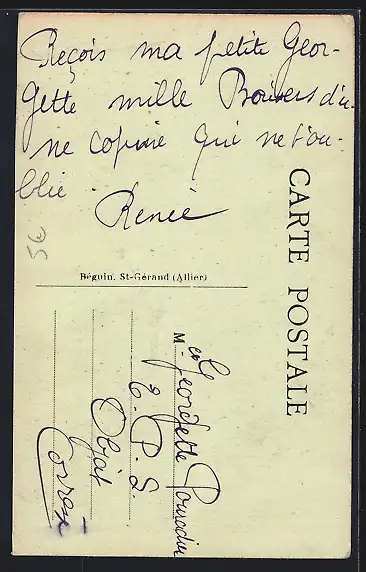 Reçois ma petite Geor-
gette mille Baisers d'u-
ne copine qui ne t'ou-
blie
Renée
5€
Béguin, St-Gérand (Allier)
CARTE POSTALE
Melle Georgette
E. P. S.
Objat
Corrèze